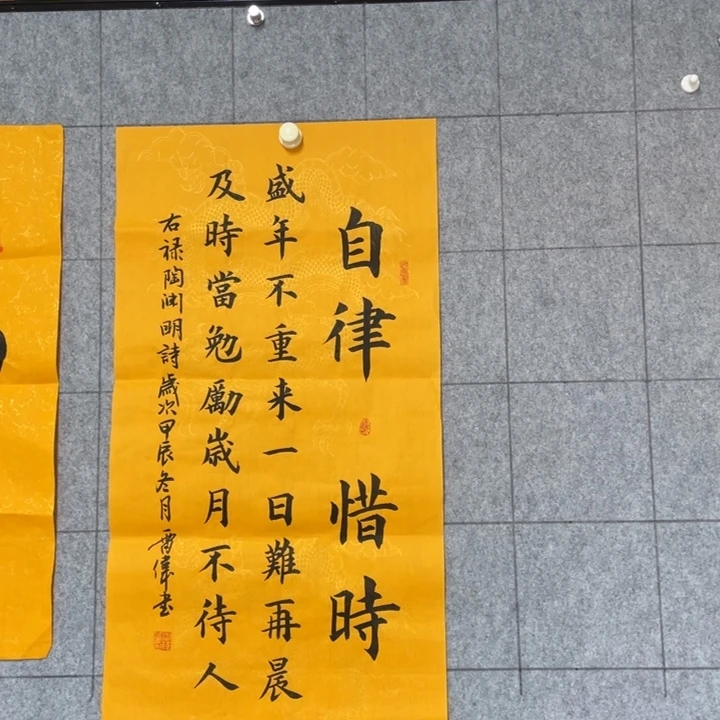 自律 惜時
盛年不重来一日難再晨
及時當勉勵歲月不待人
右禄陶渊明詩歲次甲辰冬月雷偉书